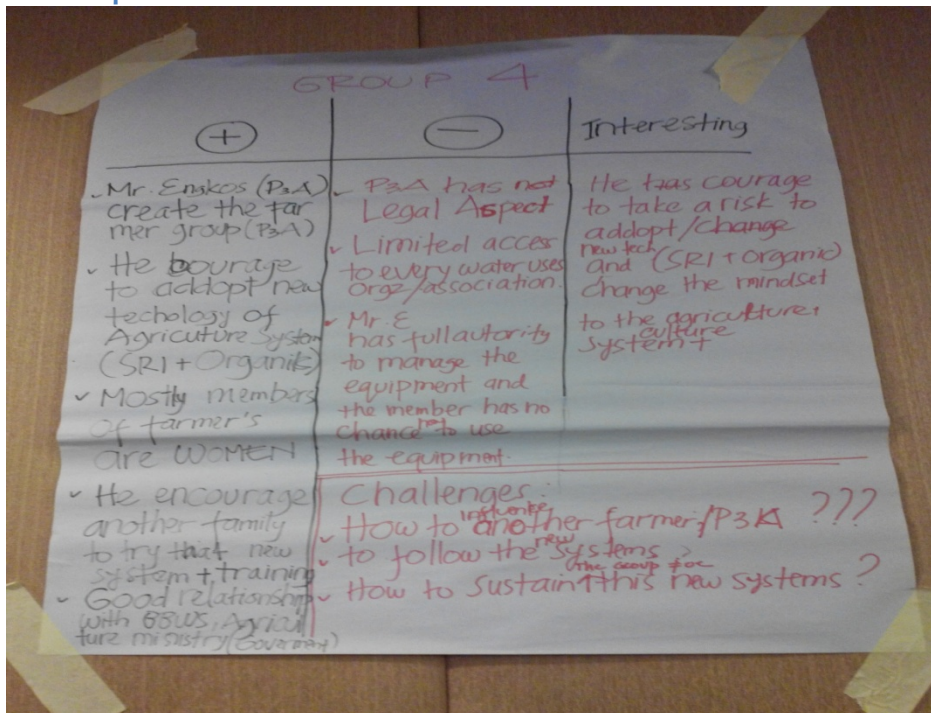 GROUP 4
+
✓ Mr. Engkos (P3A)
create the far
mer group (P3A)
✓ He bourage
to addopt new
techology of
Agricuture System
(SRI + Organik)
✓ Mostly members
of farmer's
are WOMEN
✓ He encourage
another family
to try that new
system +, training
✓ Good relationship
with BBWS, Agricul
ture ministry (Goverment)
−
✓ P3A has not
Legal Aspect
✓ Limited acces
to every water uses
orgz/association.
✓ Mr. E
has full autority
to manage the
equipment and
the member has no
chance to use
the equipment.
Interesting
He has courage
to take a risk to
addopt/change
new tech
and (SRI + organic)
change the mindset
to the agriculture,
culture
system +
Challenges:
influence
✓ How to another farmer/P3A ???
new
✓ to follow the systems ?
the group for
✓ How to sustain this new systems ?